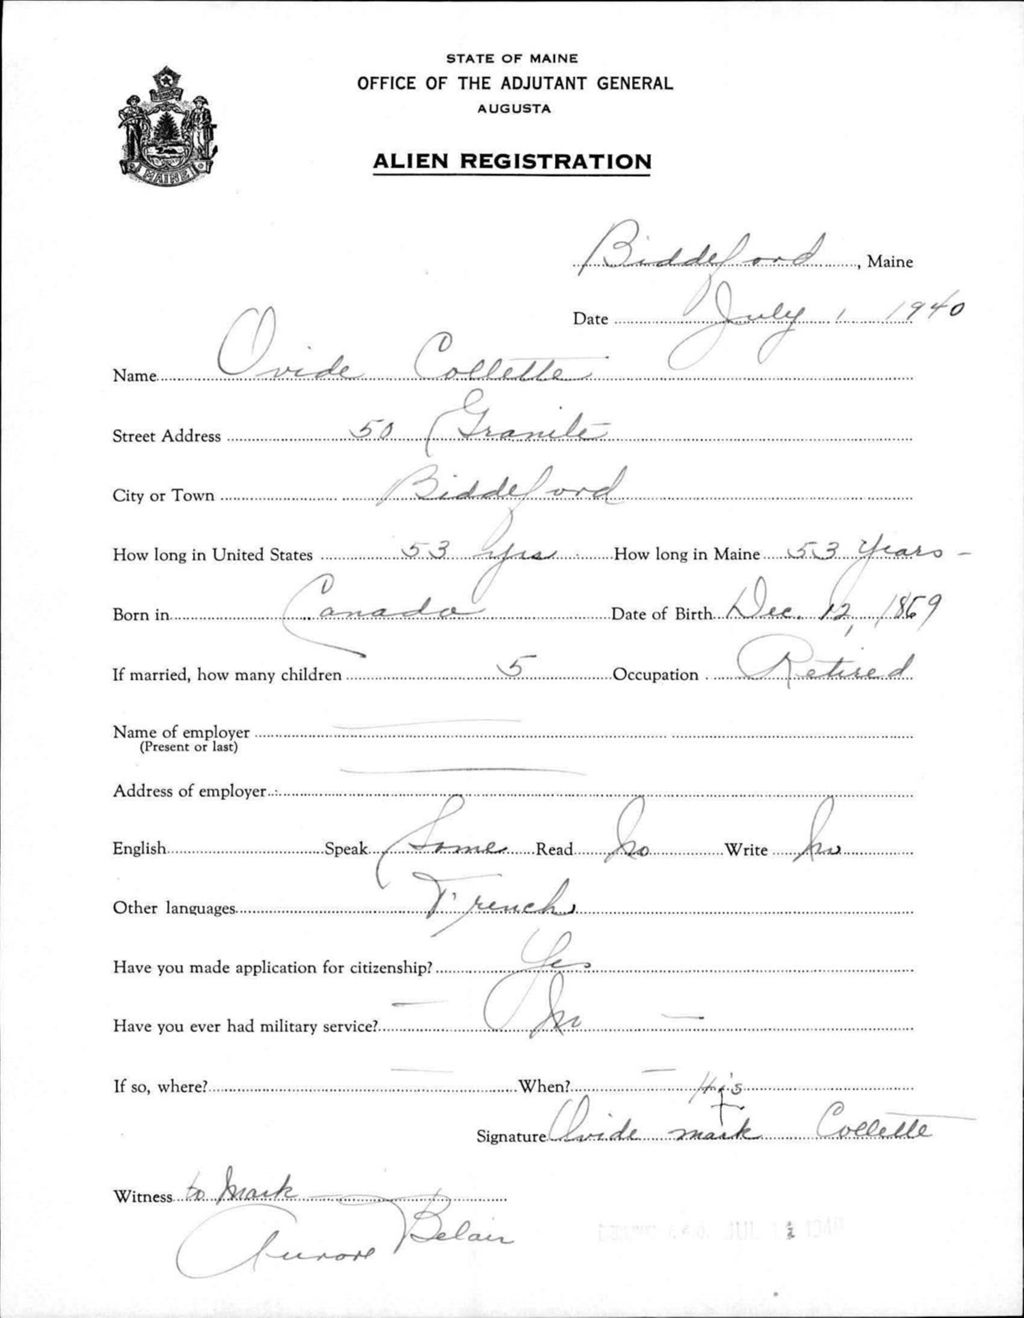 STATE OF MAINE
OFFICE OF THE ADJUTANT GENERAL
AUGUSTA
ALIEN REGISTRATION
MAINE
Biddeford, Maine
Date July 1, 1940
Name Ovide Collette
Street Address 50 Granite
City or Town Biddeford
How long in United States 53 Yrs How long in Maine 53 Years
Born in Canada Date of Birth Dec. 12, 1869
If married, how many children 5 Occupation Retired
Name of employer
(Present or last)
Address of employer
English Speak Some Read No Write No
Other languages French
Have you made application for citizenship? Yes
Have you ever had military service? No
If so, where? When?
His
Signature Ovide mark Collette
Witness to Mark
Aurore Belair